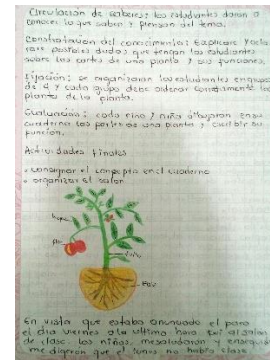 Circulacion de saberes: los estudiantes daran a
conocer lo que saben y piensan del tema.
Construccion del conocimiento: Explicare y aclarare
posibles dudas que tengan los estudiantes
sobre las partes de una planta y sus funciones.
Fijacion: se organizaran los estudiantes en grupos
de 4 y cada grupo debe ordenar correctamente las
de la planta.
Evaluacion: cada niño y niña dibujaran en su
cuaderno las partes de una planta y escribir su
función.
Actividades finales
. consignar el concepto en el cuaderno
. organizar el salon
En vista que estaba anunciado el paro
el dia viernes a la ultima hora fui al salon
de clase, los niños me saludaron y enseguida
me digeron que el lunes no habia clase